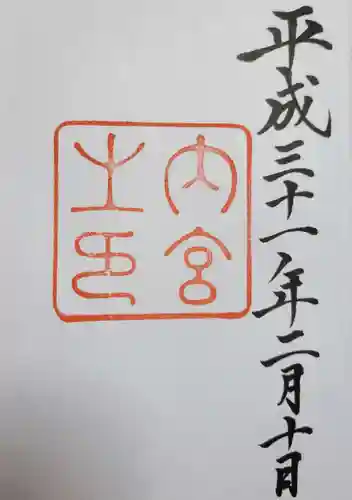 平成三十一年二月十日
内宮
之印